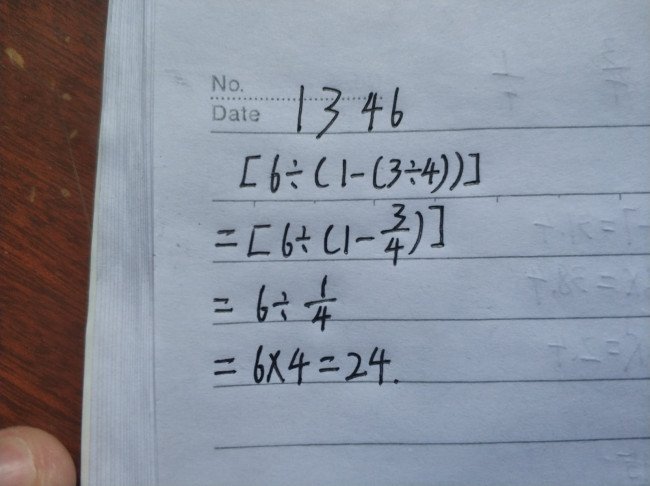 No.
Date 1 3 4 6
[6÷(1-(3÷4))]
=[6÷(1-3/4)]
=6÷1/4
=6×4=24.